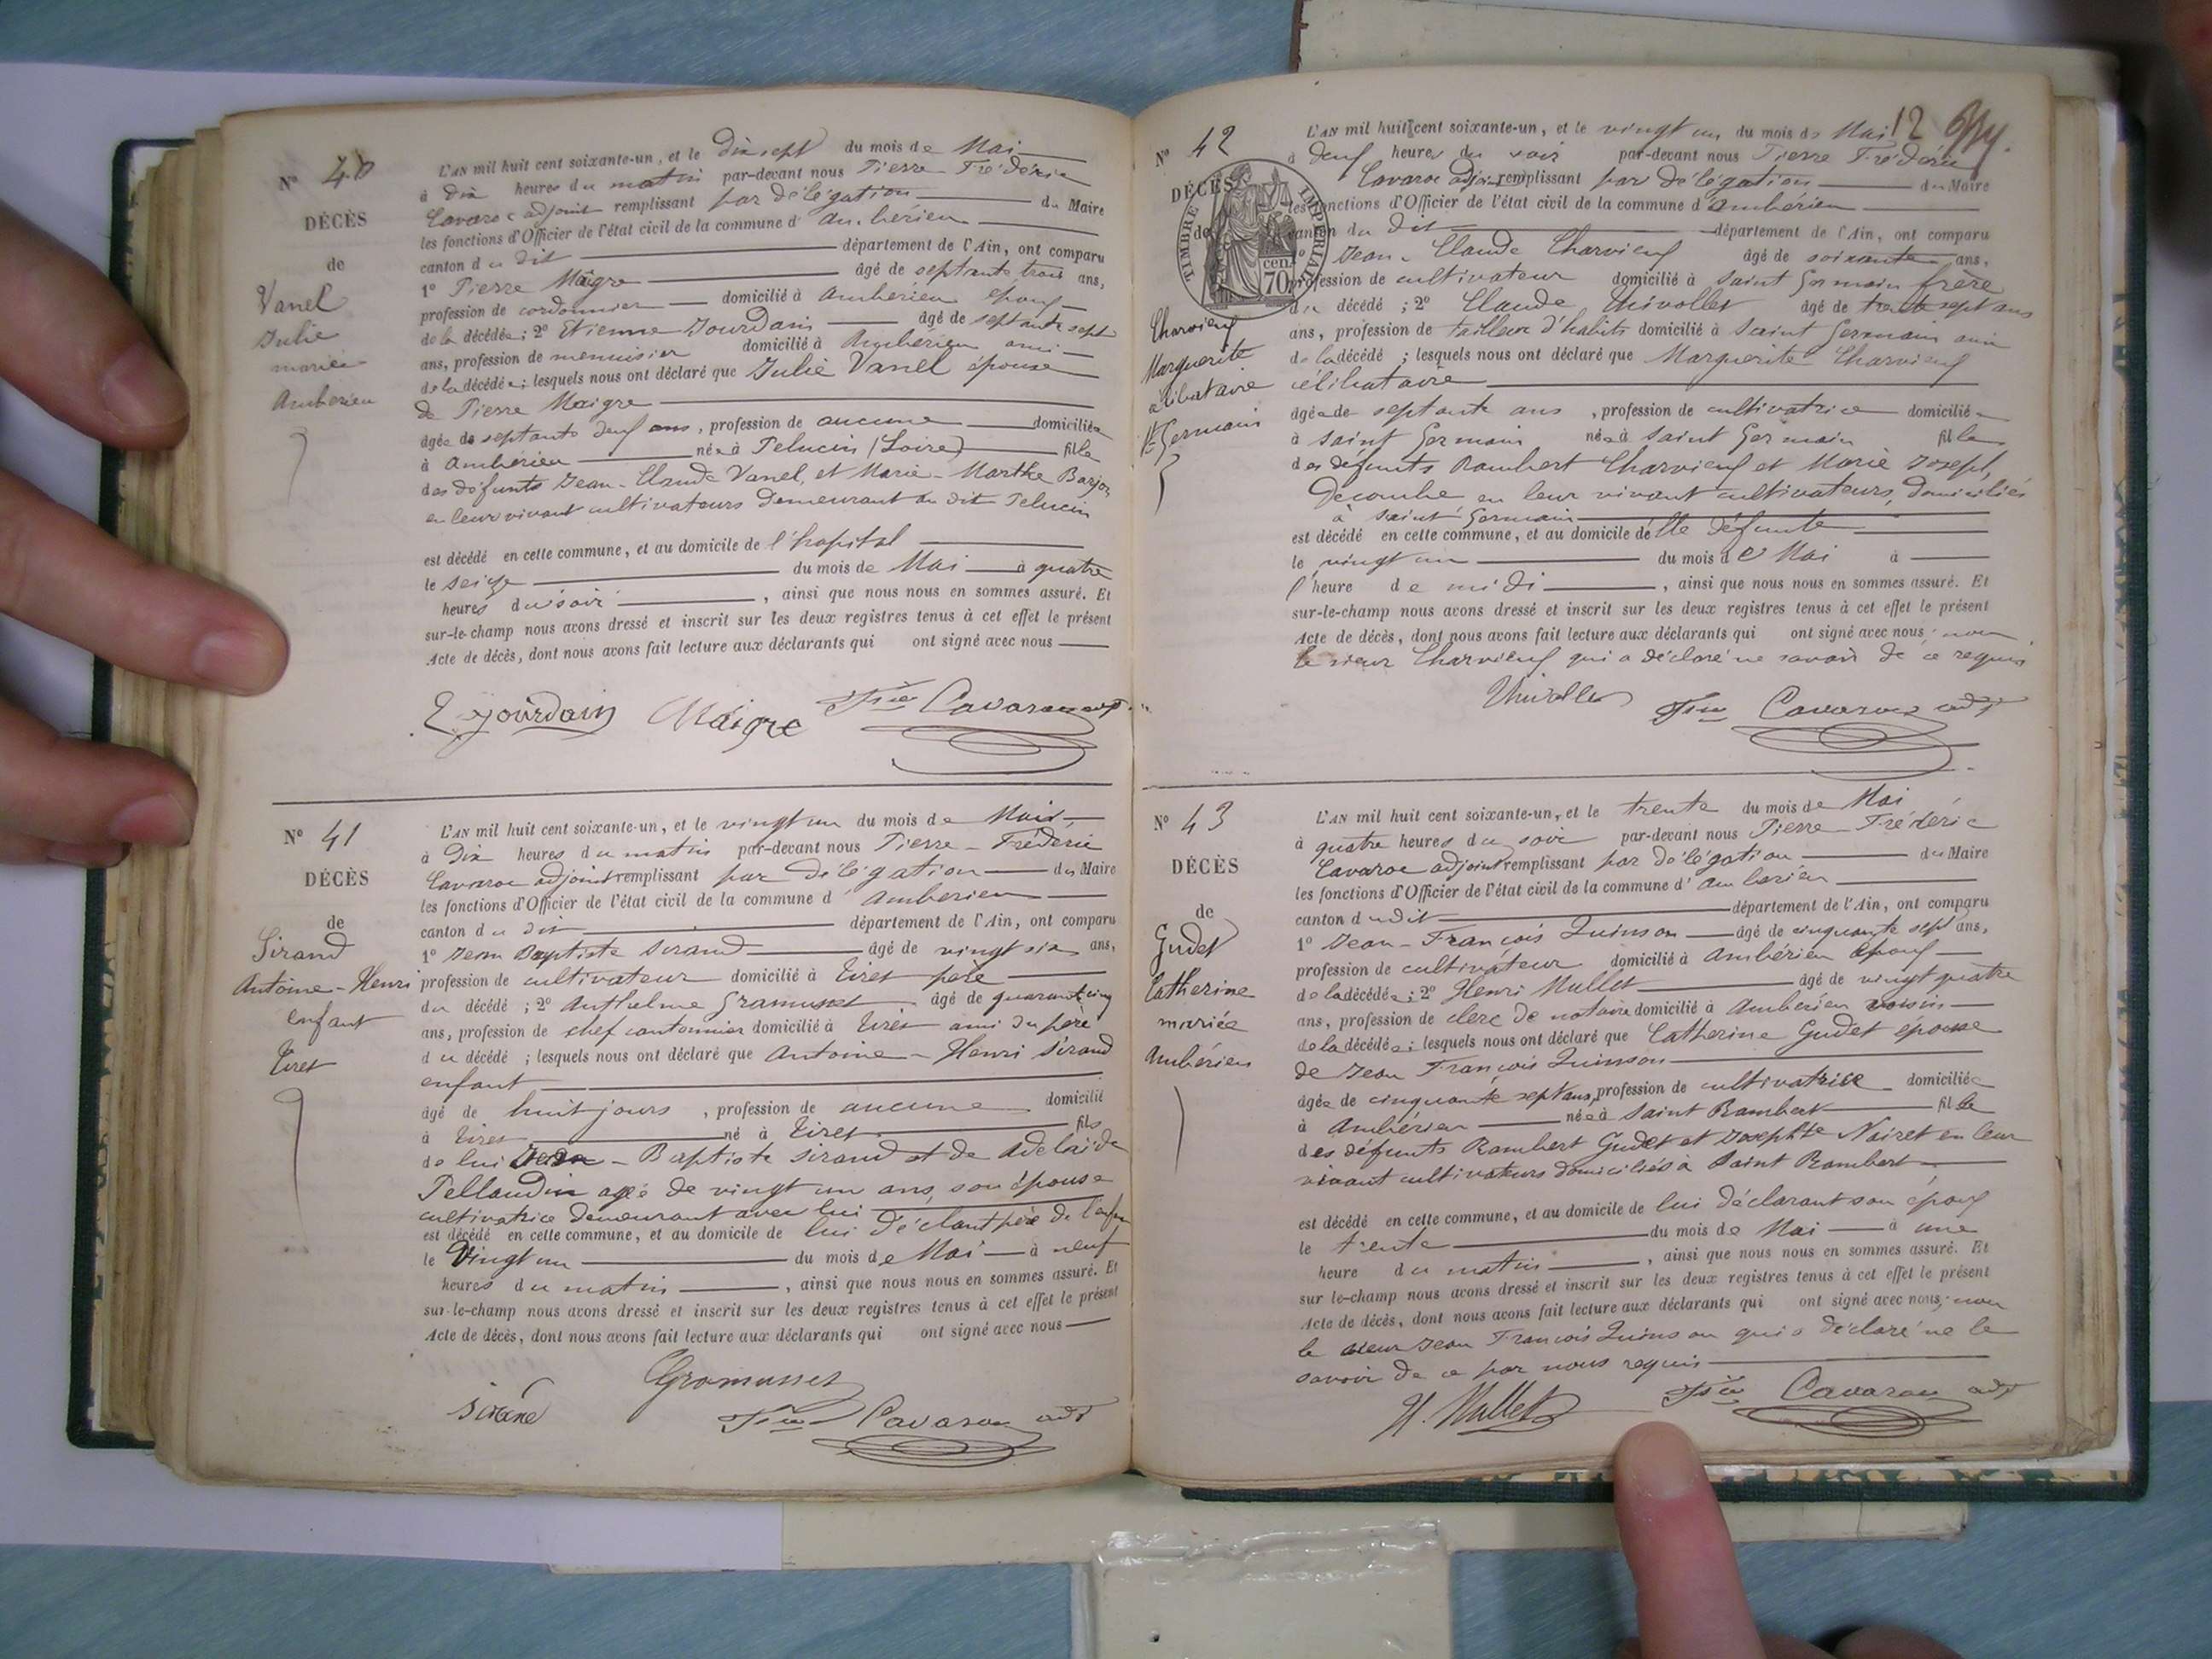 N° 40
DÉCÈS
de
Vanel
Julie
mariée
Ambérieu
L'AN mil huit cent soixante-un, et le dix sept du mois de Mai
à dix heures du matin par-devant nous Pierre Frédéric
Cavaroc adjoint remplissant par délégation du Maire
les fonctions d'Officier de l'état civil de la commune d'Ambérieu
canton du dit département de l'Ain, ont comparu
1° Pierre Maigre âgé de septante trois ans,
profession de cordonnier domicilié à Ambérieu epoux
de la décédée; 2° Etienne Jourdain âgé de septante sept
ans, profession de menuisier domicilié à Ambérieu ami
de la décédée; lesquels nous ont déclaré que Julie Vanel épouse
de Pierre Maigre
âgée de septante deux ans, profession de aucune domiciliée
à Ambérieu née à Pelucin (Loire) fille
des défunts Jean-Claude Vanel, et Marie-Marthe Barjon
en leur vivant cultivateurs demeurant au dit Pelucin
est décédé en cette commune, et au domicile de l'hopital
le seize du mois de Mai à quatre
heures du soir, ainsi que nous nous en sommes assuré. Et
sur-le-champ nous avons dressé et inscrit sur les deux registres tenus à cet effet le présent
Acte de décès, dont nous avons fait lecture aux déclarants qui ont signé avec nous
E Jourdain Maigre Cavaroc adjt
N° 41
DÉCÈS
de
Sirand
Antoine-Henri
enfant
Tiret
L'AN mil huit cent soixante-un, et le vingt un du mois de Mai
à dix heures du matin par-devant nous Pierre-Frédéric
Cavaroc adjoint remplissant par délégation du Maire
les fonctions d'Officier de l'état civil de la commune d'Ambérieu
canton du dit département de l'Ain, ont comparu
1° Jean Baptiste Sirand âgé de vingt six ans,
profession de cultivateur domicilié à Tiret père
du décédé; 2° Anthelme Gramusset âgé de quarante cinq
ans, profession de chef cantonnier domicilié à Tiret ami du père
du décédé; lesquels nous ont déclaré que Antoine-Henri Sirand
enfant
âgé de huit jours, profession de aucune domicilié
à Tiret né à Tiret fils
de lui Jean-Baptiste Sirand et de Adelaïde
Pellaudin agée de vingt un ans, son épouse
cultivatrice demeurant avec lui
est décédé en cette commune, et au domicile de lui déclant père de l'enfan
le Vingt un du mois de Mai à neuf
heures du matin, ainsi que nous nous en sommes assuré. Et
sur-le-champ nous avons dressé et inscrit sur les deux registres tenus à cet effet le présent
Acte de décès, dont nous avons fait lecture aux déclarants qui ont signé avec nous
Gramusset
Cavaroc adjt
12
N° 42
DÉCÈS
de
TIMBRE IMPERIAL
70 cen.
Charvieux
Marguerite
célibataire
St Germain
L'AN mil huit cent soixante-un, et le vingt un du mois de Mai
à deux heures du soir par-devant nous Pierre Frédéric
Cavaroc adjoint remplissant par délégation du Maire
les fonctions d'Officier de l'état civil de la commune d'Ambérieu
canton du dit département de l'Ain, ont comparu
1° Jean-Claude Charvieux âgé de soixante ans,
profession de cultivateur domicilié à Saint Germain frère
du décédé; 2° Claude Thivollet âgé de trente sept ans
ans, profession de tailleur d'habits domicilié à Saint Germain ami
de la décédé; lesquels nous ont déclaré que Marguerite Charvieux
célibataire
âgée de septante ans, profession de cultivatrice domicilié
à Saint Germain née à Saint Germain fille
des défunts Rambert Charvieux et Marie Joseph
Decombe en leur vivant cultivateurs, domiciliés
à Saint Germain
est décédé en cette commune, et au domicile de lle défunte
le vingt un du mois de Mai à
l'heure de midi, ainsi que nous nous en sommes assuré. Et
sur-le-champ nous avons dressé et inscrit sur les deux registres tenus à cet effet le présent
Acte de décès, dont nous avons fait lecture aux déclarants qui ont signé avec nous, non
le sieur Charvieux qui a déclaré ne savoir de ce requis
Thivollet Cavaroc adjt
N° 43
DÉCÈS
de
Gudet
Catherine
mariée
Ambérieu
L'AN mil huit cent soixante-un, et le trente du mois de Mai
à quatre heures du soir par-devant nous Pierre-Frédéric
Cavaroc adjoint remplissant par délégation du Maire
les fonctions d'Officier de l'état civil de la commune d'Ambérieu
canton du dit département de l'Ain, ont comparu
1° Jean-François Quinson âgé de cinquante sept ans,
profession de cultivateur domicilié à Ambérieu Epoux
de la décédée; 2° Henri Mullet âgé de vingt quatre
ans, profession de clerc de notaire domicilié à Ambérieu voisin
de la décédée; lesquels nous ont déclaré que Catherine Gudet épouse
de Jean François Quinson
âgée de cinquante sept ans, profession de cultivatrice domiciliée
à Ambérieu née à Saint Rambert fille
des défunts Rambert Gudet et Josephte Nairet en leur
vivant cultivateurs domiciliés à Saint Rambert
est décédé en cette commune, et au domicile de lui déclarant son époux
le trente du mois de Mai à une
heure du matin, ainsi que nous nous en sommes assuré. Et
sur le-champ nous avons dressé et inscrit sur les deux registres tenus à cet effet le présent
Acte de décès, dont nous avons fait lecture aux déclarants qui ont signé avec nous, non
le sieur Jean François Quinson qui a déclaré ne le
savoir de ce par nous requis
H. Mullet Cavaroc adjt